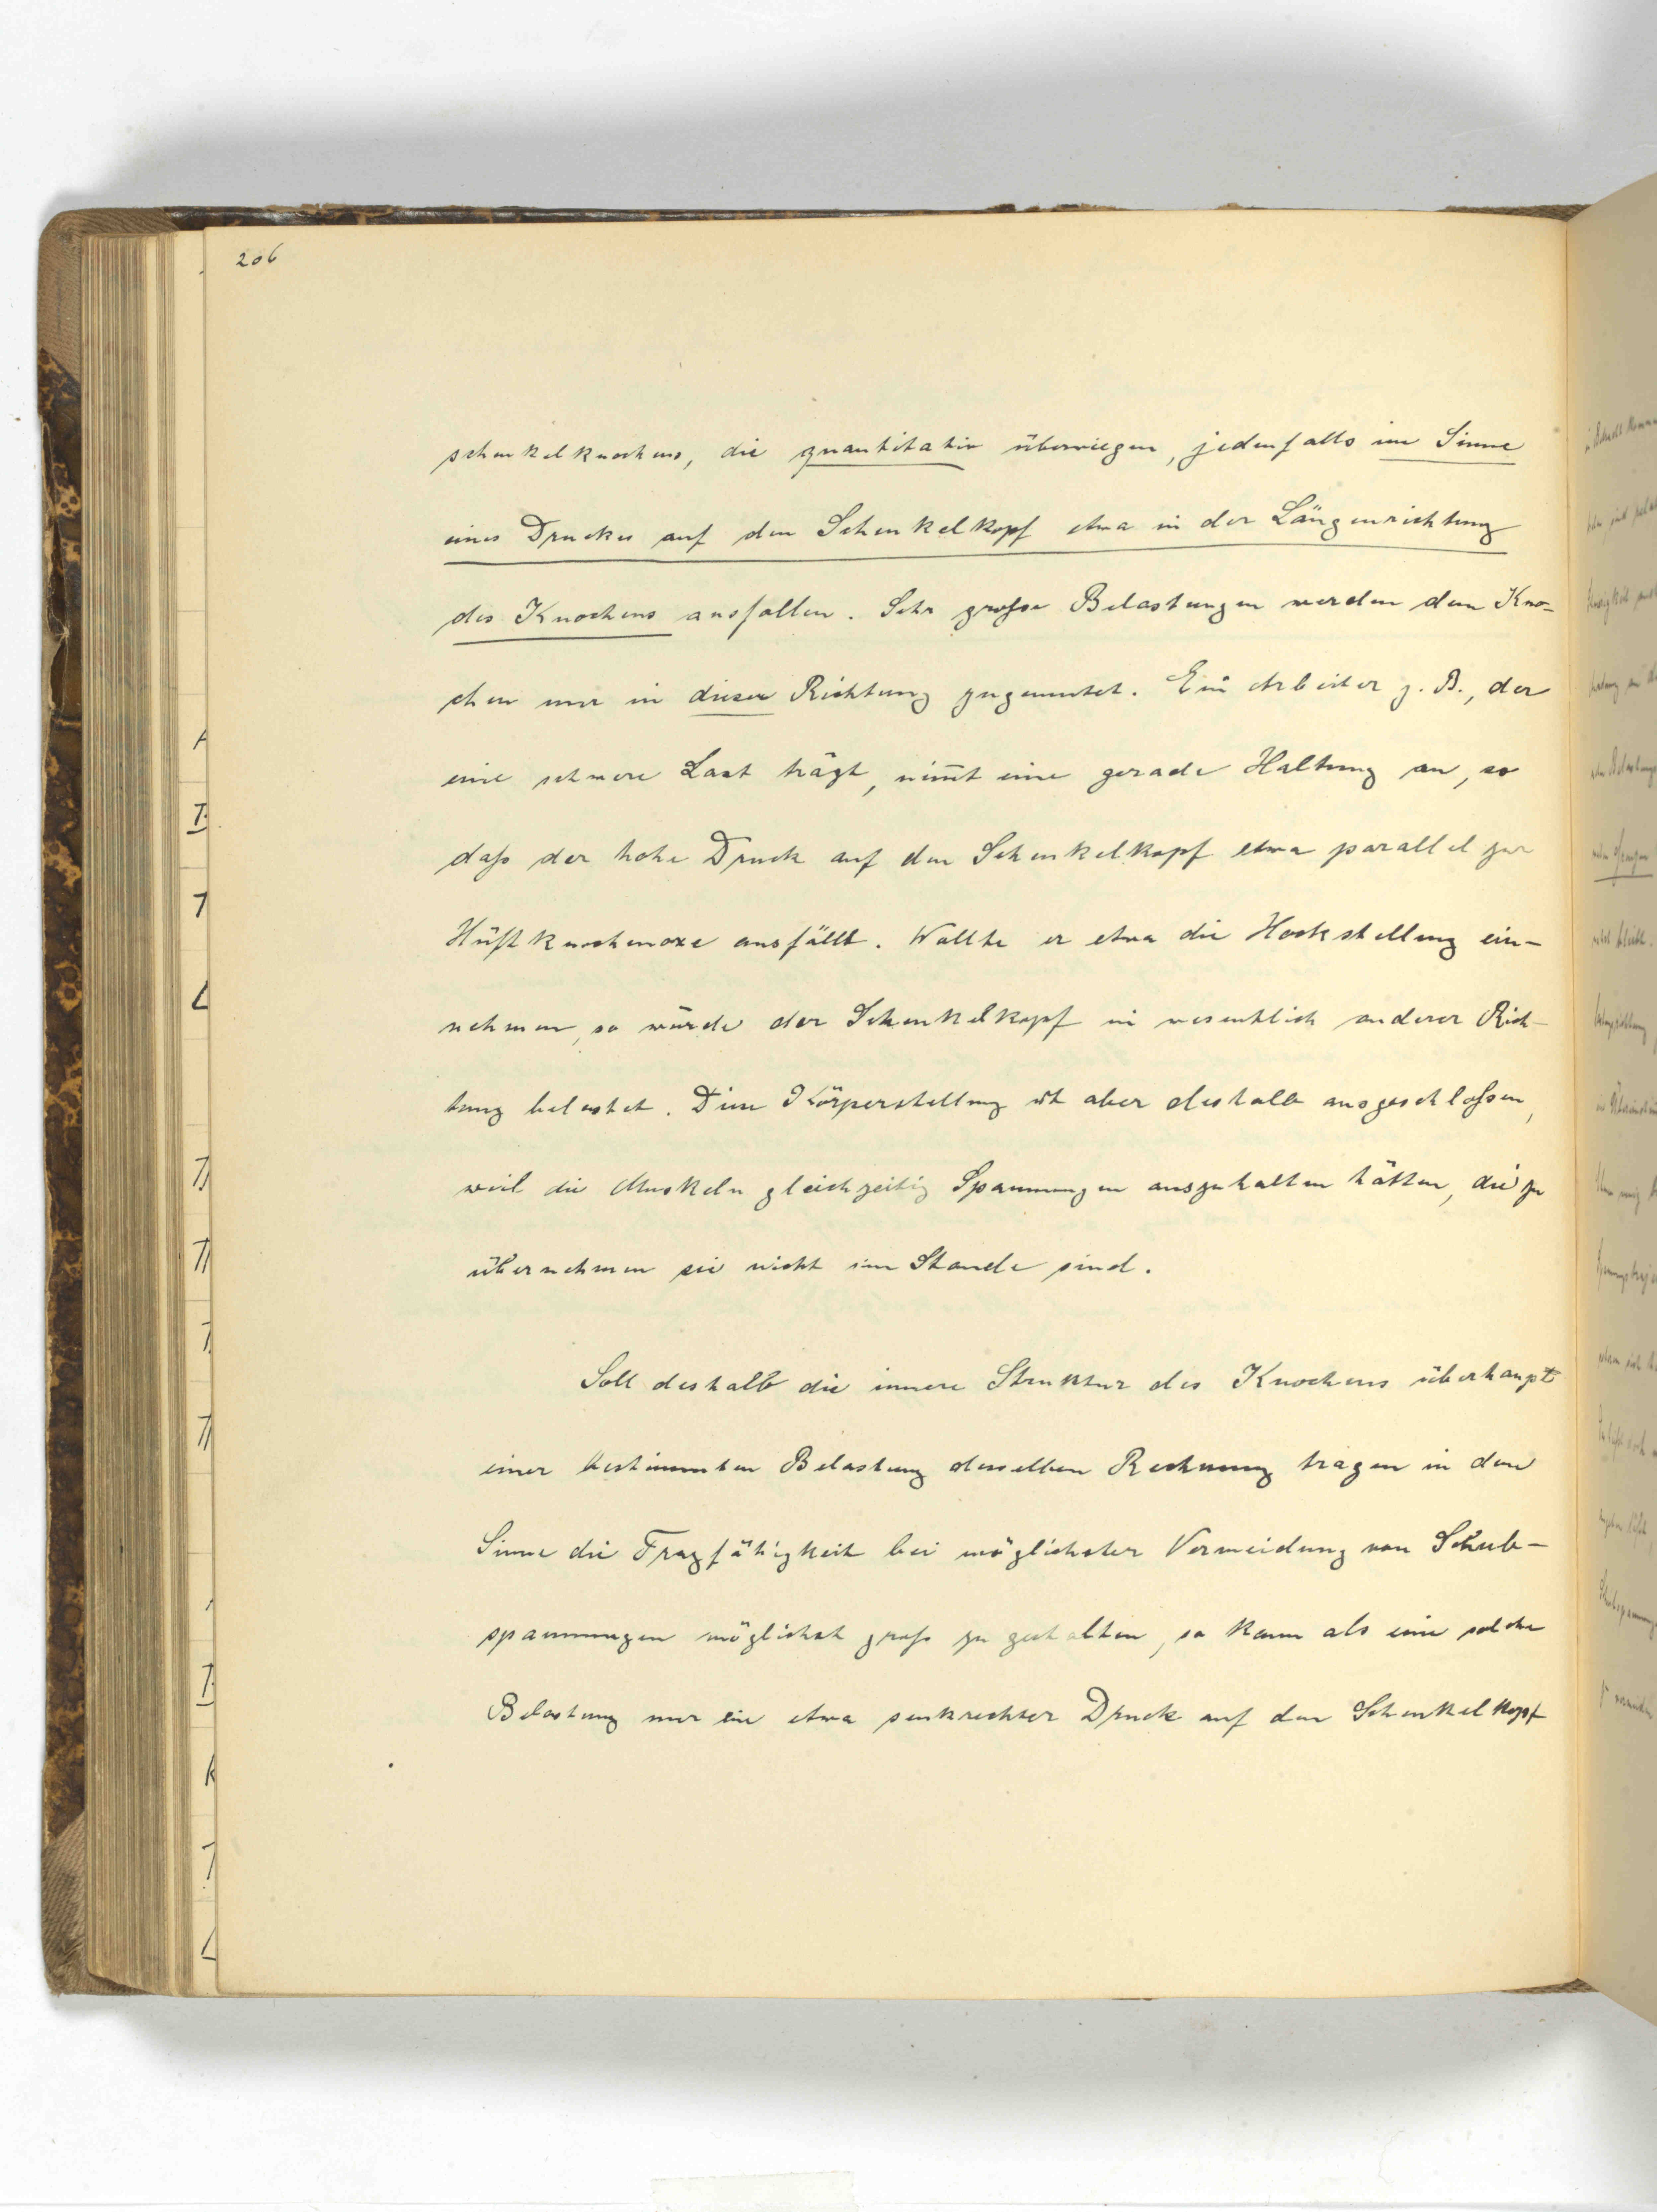 206
schenkelknochens, die quantitativ überwiegen, jedenfalls im Sinne
eines Druckes auf den Schenkelkopf etwa in der Längenrichtung
des Knochens ausfallen. Sehr große Belastungen werden dem Kno-
chen nur in dieser Richtung zugemutet. Ein Arbeiter z. B., der
eine schwere Last trägt, nim̄t eine gerade Haltung an, so
daß der hohe Druck auf den Schenkelkopf etwa parallel zur
Hüftknochenaxe ausfällt. Wollte er etwa die Hockstellung ein-
nehmen, so würde der Schenkelkopf in wesentlich anderer Rich-
tung belastet. Diese Körperstellung ist aber deshalb ausgeschloßen,
weil die Muskeln gleichzeitig Spannungen auszuhalten hätten, die zu
übernehmen sie nicht im Stande sind.
Soll deshalb die innere Struktur des Knochens überhaupt
einer bestimmten Belastung desselben Rechnung tragen in dem
Sinne die Tragfähigkeit bei möglichster Vermeidung von Schub-
spannungen möglichst groß zu gestalten, so kann als eine solche
Belastung nur ein etwa senkrechter Druck auf den Schenkelkopf